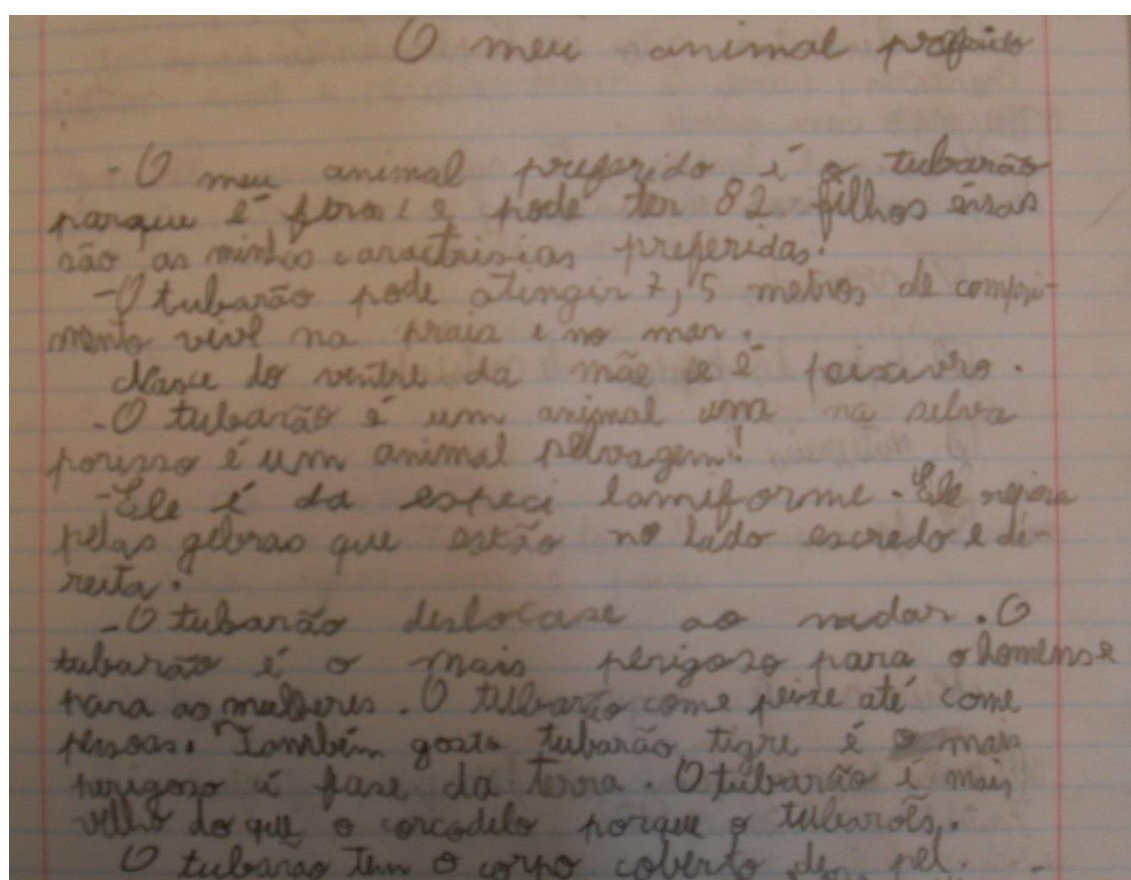 O meu animal preferido
- O meu animal preferido é o tubarão
parque é feros e pode ter 82 filhos ésas
são as minhas caractrisias preferidas!
- O tubarão pode atingir 7,5 metros de compri-
mento vive na praia e no mar.
Nasce do ventre da mãe e é peixivro.
- O tubarão é um animal uma na selva
porisso é um animal selvagem!
- Ele é da especi lamiforme. Ele respira
pelas gelras que estão no lado escredo e di-
reita.
- O tubarão deslocase ao nadar. O
tubarão é o mais perigozo para o homens e
para as mulheres. O tubarão come peixe até come
pessoas. Também gosto tubarão tigre é o mais
perigozo á fase da terra. O tubarão é mais
velho do que o corcodilo porque o tubarõis.
O tubarao tem o corpo coberto de pel.